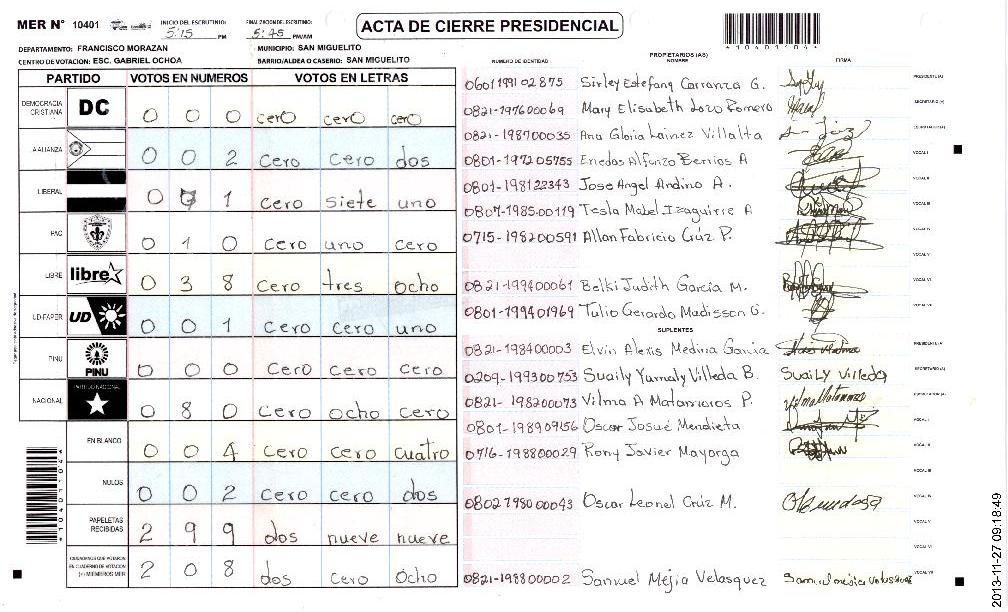 MER Nº 10401
INICIO DEL ESCRUTINIO: 5:15 PM
FINALIZACION DEL ESCRUTINIO: 5:45 PM/AM
ACTA DE CIERRE PRESIDENCIAL
*104011041*
DEPARTAMENTO: FRANCISCO MORAZAN MUNICIPIO: SAN MIGUELITO
CENTRO DE VOTACION: ESC. GABRIEL OCHOA BARRIO/ALDEA O CASERIO: SAN MIGUELITO
PARTIDO VOTOS EN NUMEROS VOTOS EN LETRAS
DEMOCRACIA CRISTIANA DC 0 0 0 cero cero cero
LA ALIANZA 0 0 2 cero cero dos
LIBERAL 0 7 1 cero siete uno
PAC 0 1 0 cero uno cero
LIBRE libre 0 3 8 cero tres ocho
UD-FAPER UD 0 0 1 cero cero uno
PINU PINU 0 0 0 cero cero cero
NACIONAL PARTIDO NACIONAL 0 8 0 cero ocho cero
EN BLANCO 0 0 4 cero cero cuatro
NULOS 0 0 2 cero cero dos
PAPELETAS RECIBIDAS 2 9 9 dos nueve nueve
CIUDADANOS QUE VOTARON EN CUADERNO DE VOTACION (+) MIEMBROS MER 2 0 8 dos cero ocho
PROPIETARIOS (AS)
NUMERO DE IDENTIDAD NOMBRE FIRMA
0601199102875 Sirley Estefany Carranza G. PRESIDENTE (A)
0821-197600069 Mary Elisabeth Lozo Romero SECRETARIO (A)
0821-198700035 Ana Gloria Lainez Villalta ESCRUTADOR (A)
0801-197205755 Enedas Alfonzo Berrios A VOCAL I
0801-198122343 Jose Angel Andino A. VOCAL II
0807-198500119 Tesla Mabel Izaguirre A VOCAL III
0715-198200591 Allan Fabricio Crúz P. VOCAL IV
VOCAL V
0821-199400061 Belki Judith García M. VOCAL VI
0801-199401969 Tulio Gerardo Madisson G. VOCAL VII
SUPLENTES
0821-198400003 Elvin Alexis Medina Garcia PRESIDENTE (A)
0209-199300753 Suaily Yamely Villeda B. Suaily Villeda SECRETARIO (A)
0821-198200073 Vilma A Matamoros P. Vilma Matamoros ESCRUTADOR (A)
0801-198909156 Oscar Josué Mendieta VOCAL I
0716-198800029 Rony Javier Mayorga VOCAL II
VOCAL III
0802198000043 Oscar Leonel Crúz M. VOCAL IV
VOCAL V
VOCAL VI
0821-198800002 Samuel Mejia Velasquez Samuel mejia Velasquez VOCAL VII
2013-11-27 09:18:49